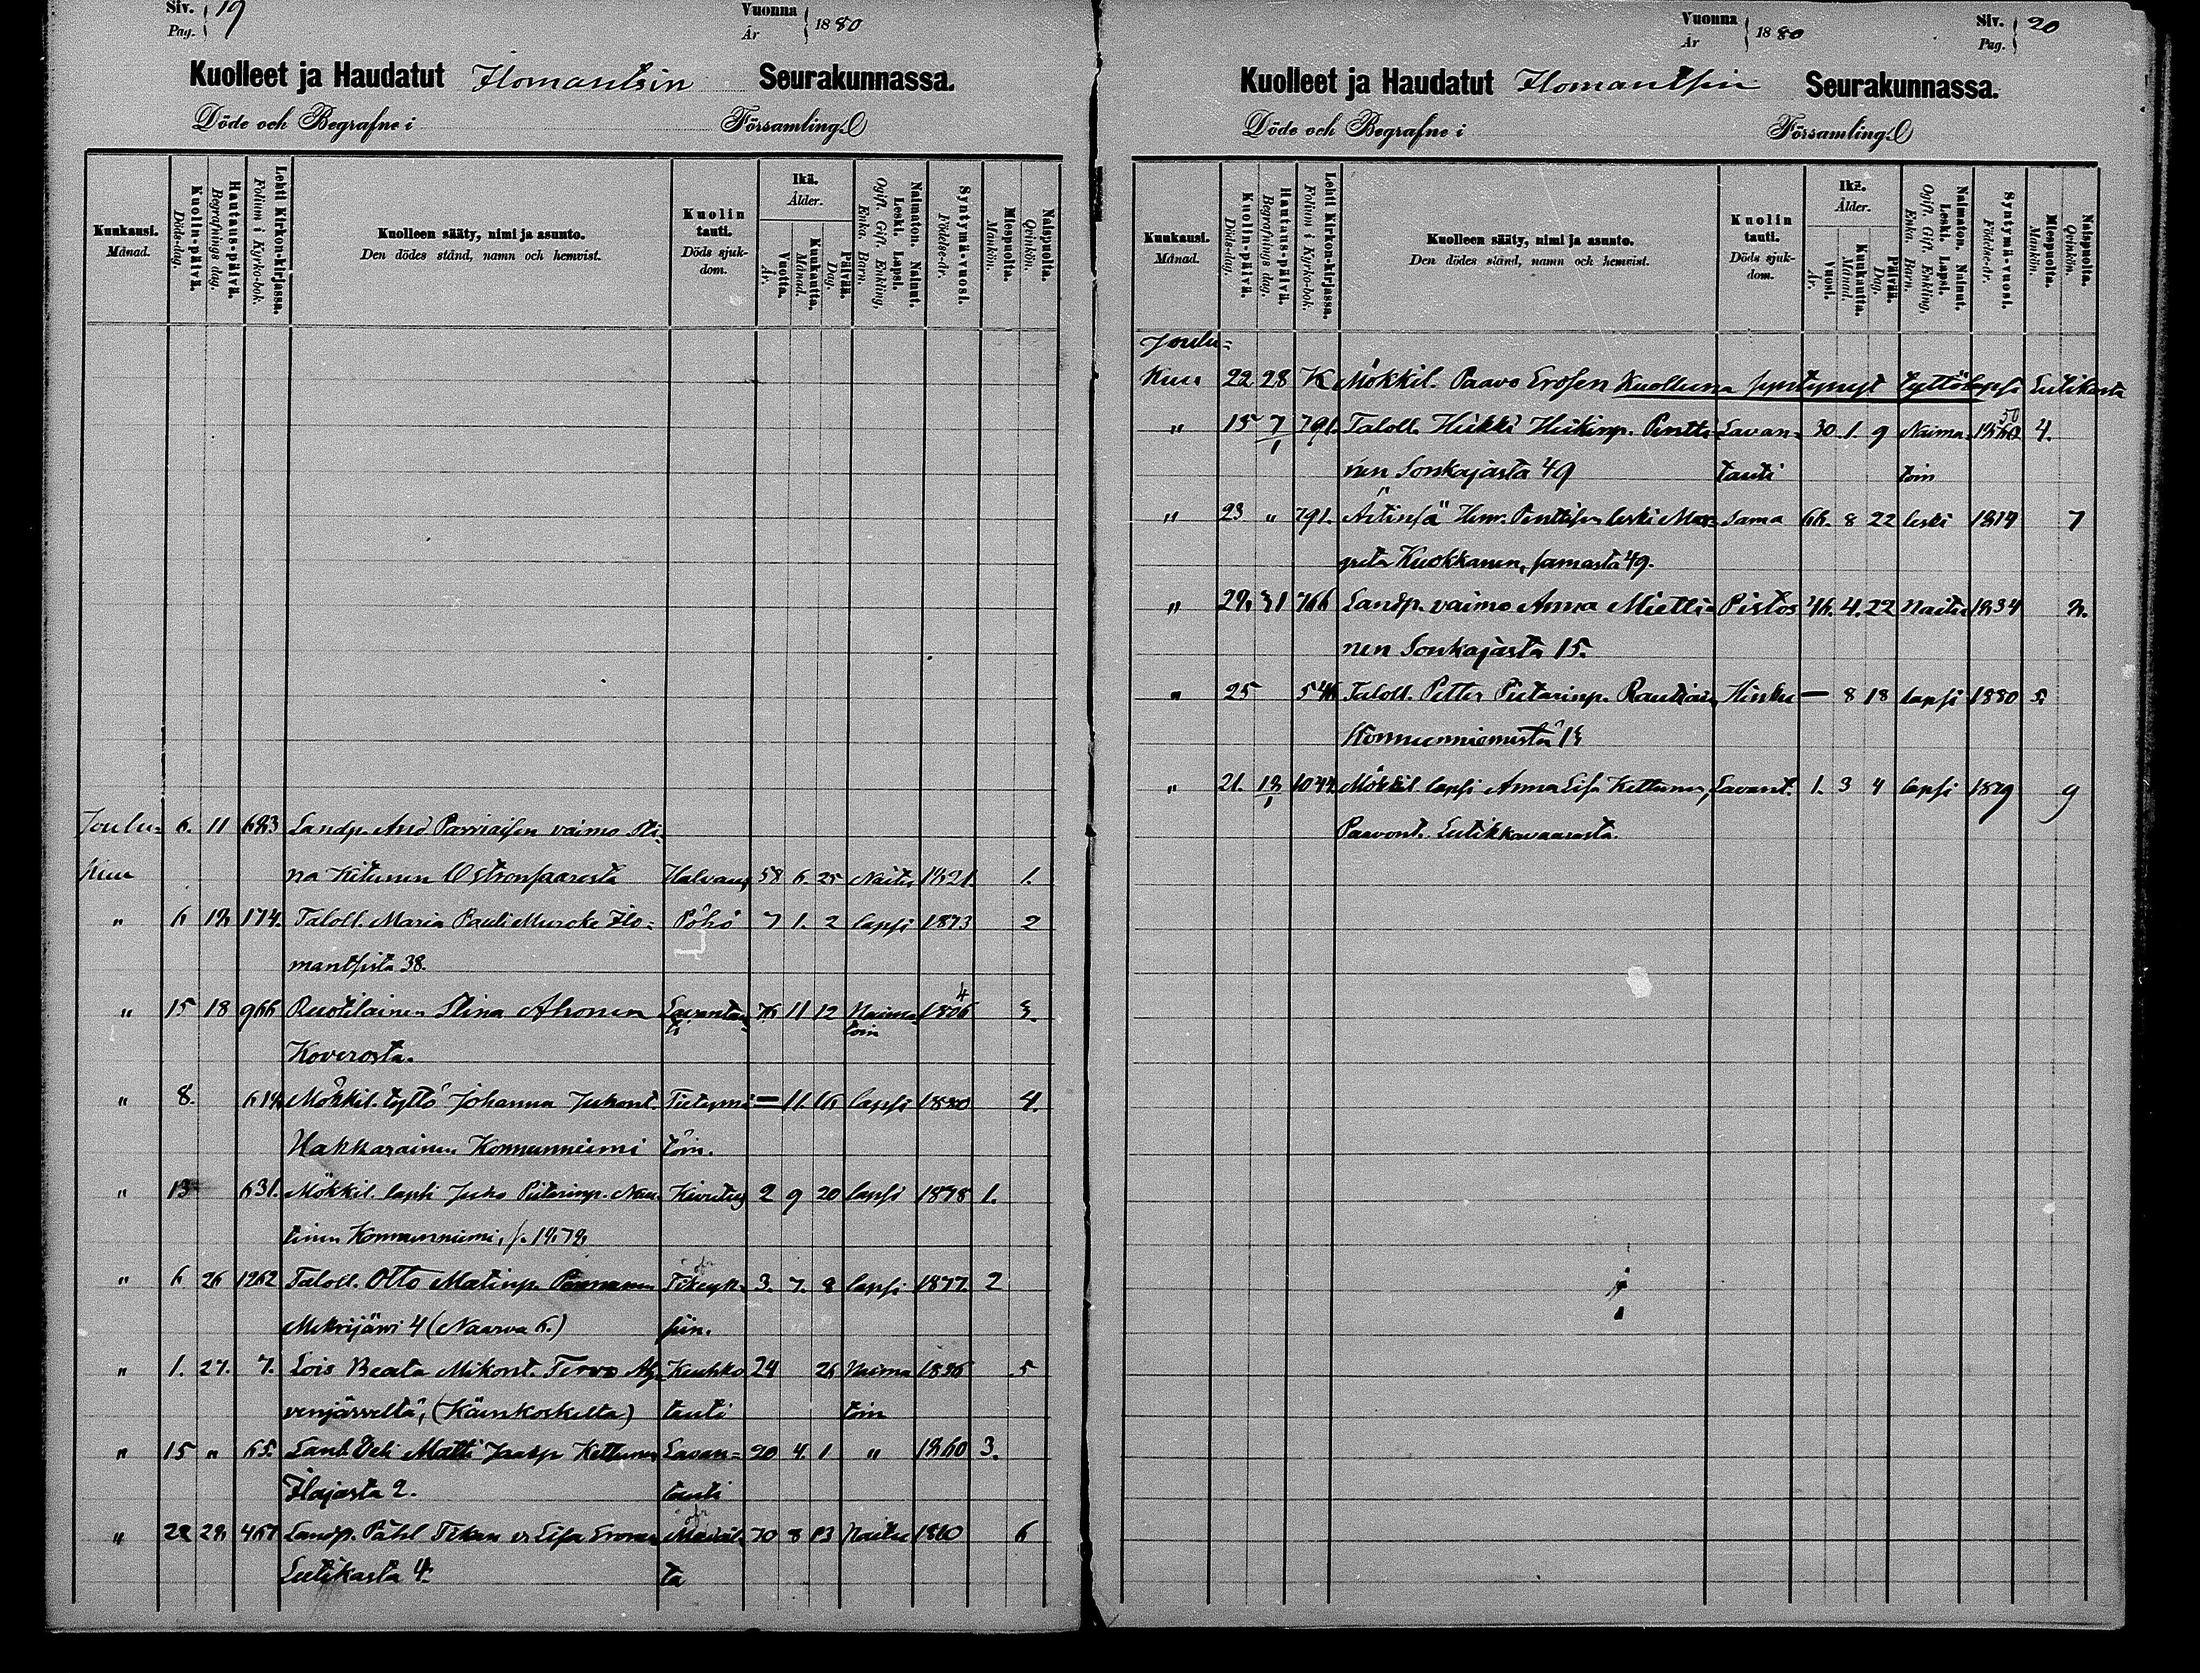 Siv. 19
Pag.
Vuonna 1880
År
Kuolleet ja Haudatut Ilomantsin Seurakunnassa.
Döde och Begrafne i Församling.
Kuukausi. Månad.
Kuolin-päivä. Döds-dag.
Hautaus-päivä. Begrafnings dag.
Lehti Kirkon-kirjassa. Folium i Kyrko-bok.
Kolleen sääty, nimi ja asunto.
Den dödes stånd, namn och hemvist.
Kuolin tauti. Döds sjukdom.
Ikä. Ålder.
Vuotta. År.
Kuukautta. Månad.
Päivää. Dag.
Naimaton. Nainut. Leski. Lapsi.
Ogift. Gift. Enkling, Enka. Barn.
Syntymä-vuosi. Födelse-år.
Miespuolta. Mankön.
Naispuolta. Qvinkön.
Joulu- 6. 11 683 Landp. And Parviaisen vaimo Sti-
Kuu na Kitunen Ostronsaaresta Halvaus 58 6. 25 Naitu 1821. 1.
" 6 18 174. Taloll. Maria Pauli Muroke Ilo= Pöhö 7 1. 2 lapsi 1873 2
mantsista 38.
" 15 18 966 Ruotilainen Stina Ahonen 76 11 12 Naima 1806 4 3.
Koverosta. toin
" 8. Mökkil. tyttö Johanna Juhont. Tietymä — 11. 16 lapsi 1880 4.
Hakkarainen Konnunniemi töin.
" 13 631. Mökkil. lapsi Juho Pietarinp. 2 9 20 lapsi 1878 1.
tinen Konnunniemi,
" 6 26 1262 Taloll. Otto Matinp. Pennanen 3. 7. 8 lapsi 1877. 2
Mekrijärvi 4 (Naarva 6.)
" 1. 27. 7. Lois Beata Mikont. Tervo Keuhko 24 26 Naima 1856 5
venjärveltä, (Käenkoskelta) tauti toin
" 15 " 65. Matti Jaakp Kettunen Lavan= 20 4. 1 " 1860 3.
Ilajasta 2. tauti
" 22 28 467 Landp. Påhl Tikan v. Lisa 70 8 13 Naitu 1810 6
Leutikasta 4. ta
Vuonna 1880
År
Siv. 20
Pag.
Kuolleet ja Haudatut Ilomantsin Seurakunnassa.
Döde och Begrafne i Församling.
Kuukausi. Månad.
Kuolin-päivä. Döds-dag.
Hautaus-päivä. Begrafnings dag.
Lehti Kirkon-kirjassa. Folium i Kyrko-bok.
Kuolleen sääty, nimi ja asunto.
Den dödes stånd, namn och hemvist.
Kuolin tauti. Döds sjukdom.
Ikä. Ålder.
Vuosi. År.
Kuukautta. Månad.
Päivää. Dag.
Naimaton. Nainut. Leski. Lapsi.
Ogift. Gift. Enkling, Enka. Barn.
Syntymä-vuosi. Födelse-år.
Miespuolta. Mankön.
Naispuolta. Qvinkön.
Joulu=
Kuu 22 28 K Mökkil. Paavo Erosen Kuolluna syntynyt tyttölapsi Leutikasta
" 15 7/1 791. Taloll. Heikki Heikinp. Pentti- Lavan- 30 1. 9 Naima- 50 4.
nen Sonkajasta 49 tauti toin
" 23 " 791. Hinr. Penttisen leski Mar- Sama 66. 8 22 leski 1814 7
greta Kuokkanen, samasta 49.
" 28 31 766 Landp. vaimo Anna Mietti- Pistos 46. 4. 22 Naitu 1834 8.
nen Sonkajasta 15.
" 25 546 Taloll. Petter Pietarinp. Rautiain Hinku — 8 18 lapsi 1880 5
Konnunniemestä
" 21. Mökkil. lapsi Anna Lisa Kettunen, Lavant. 1. 3 4 lapsi 1879 9
Paavont. Leutikkavaarasta.